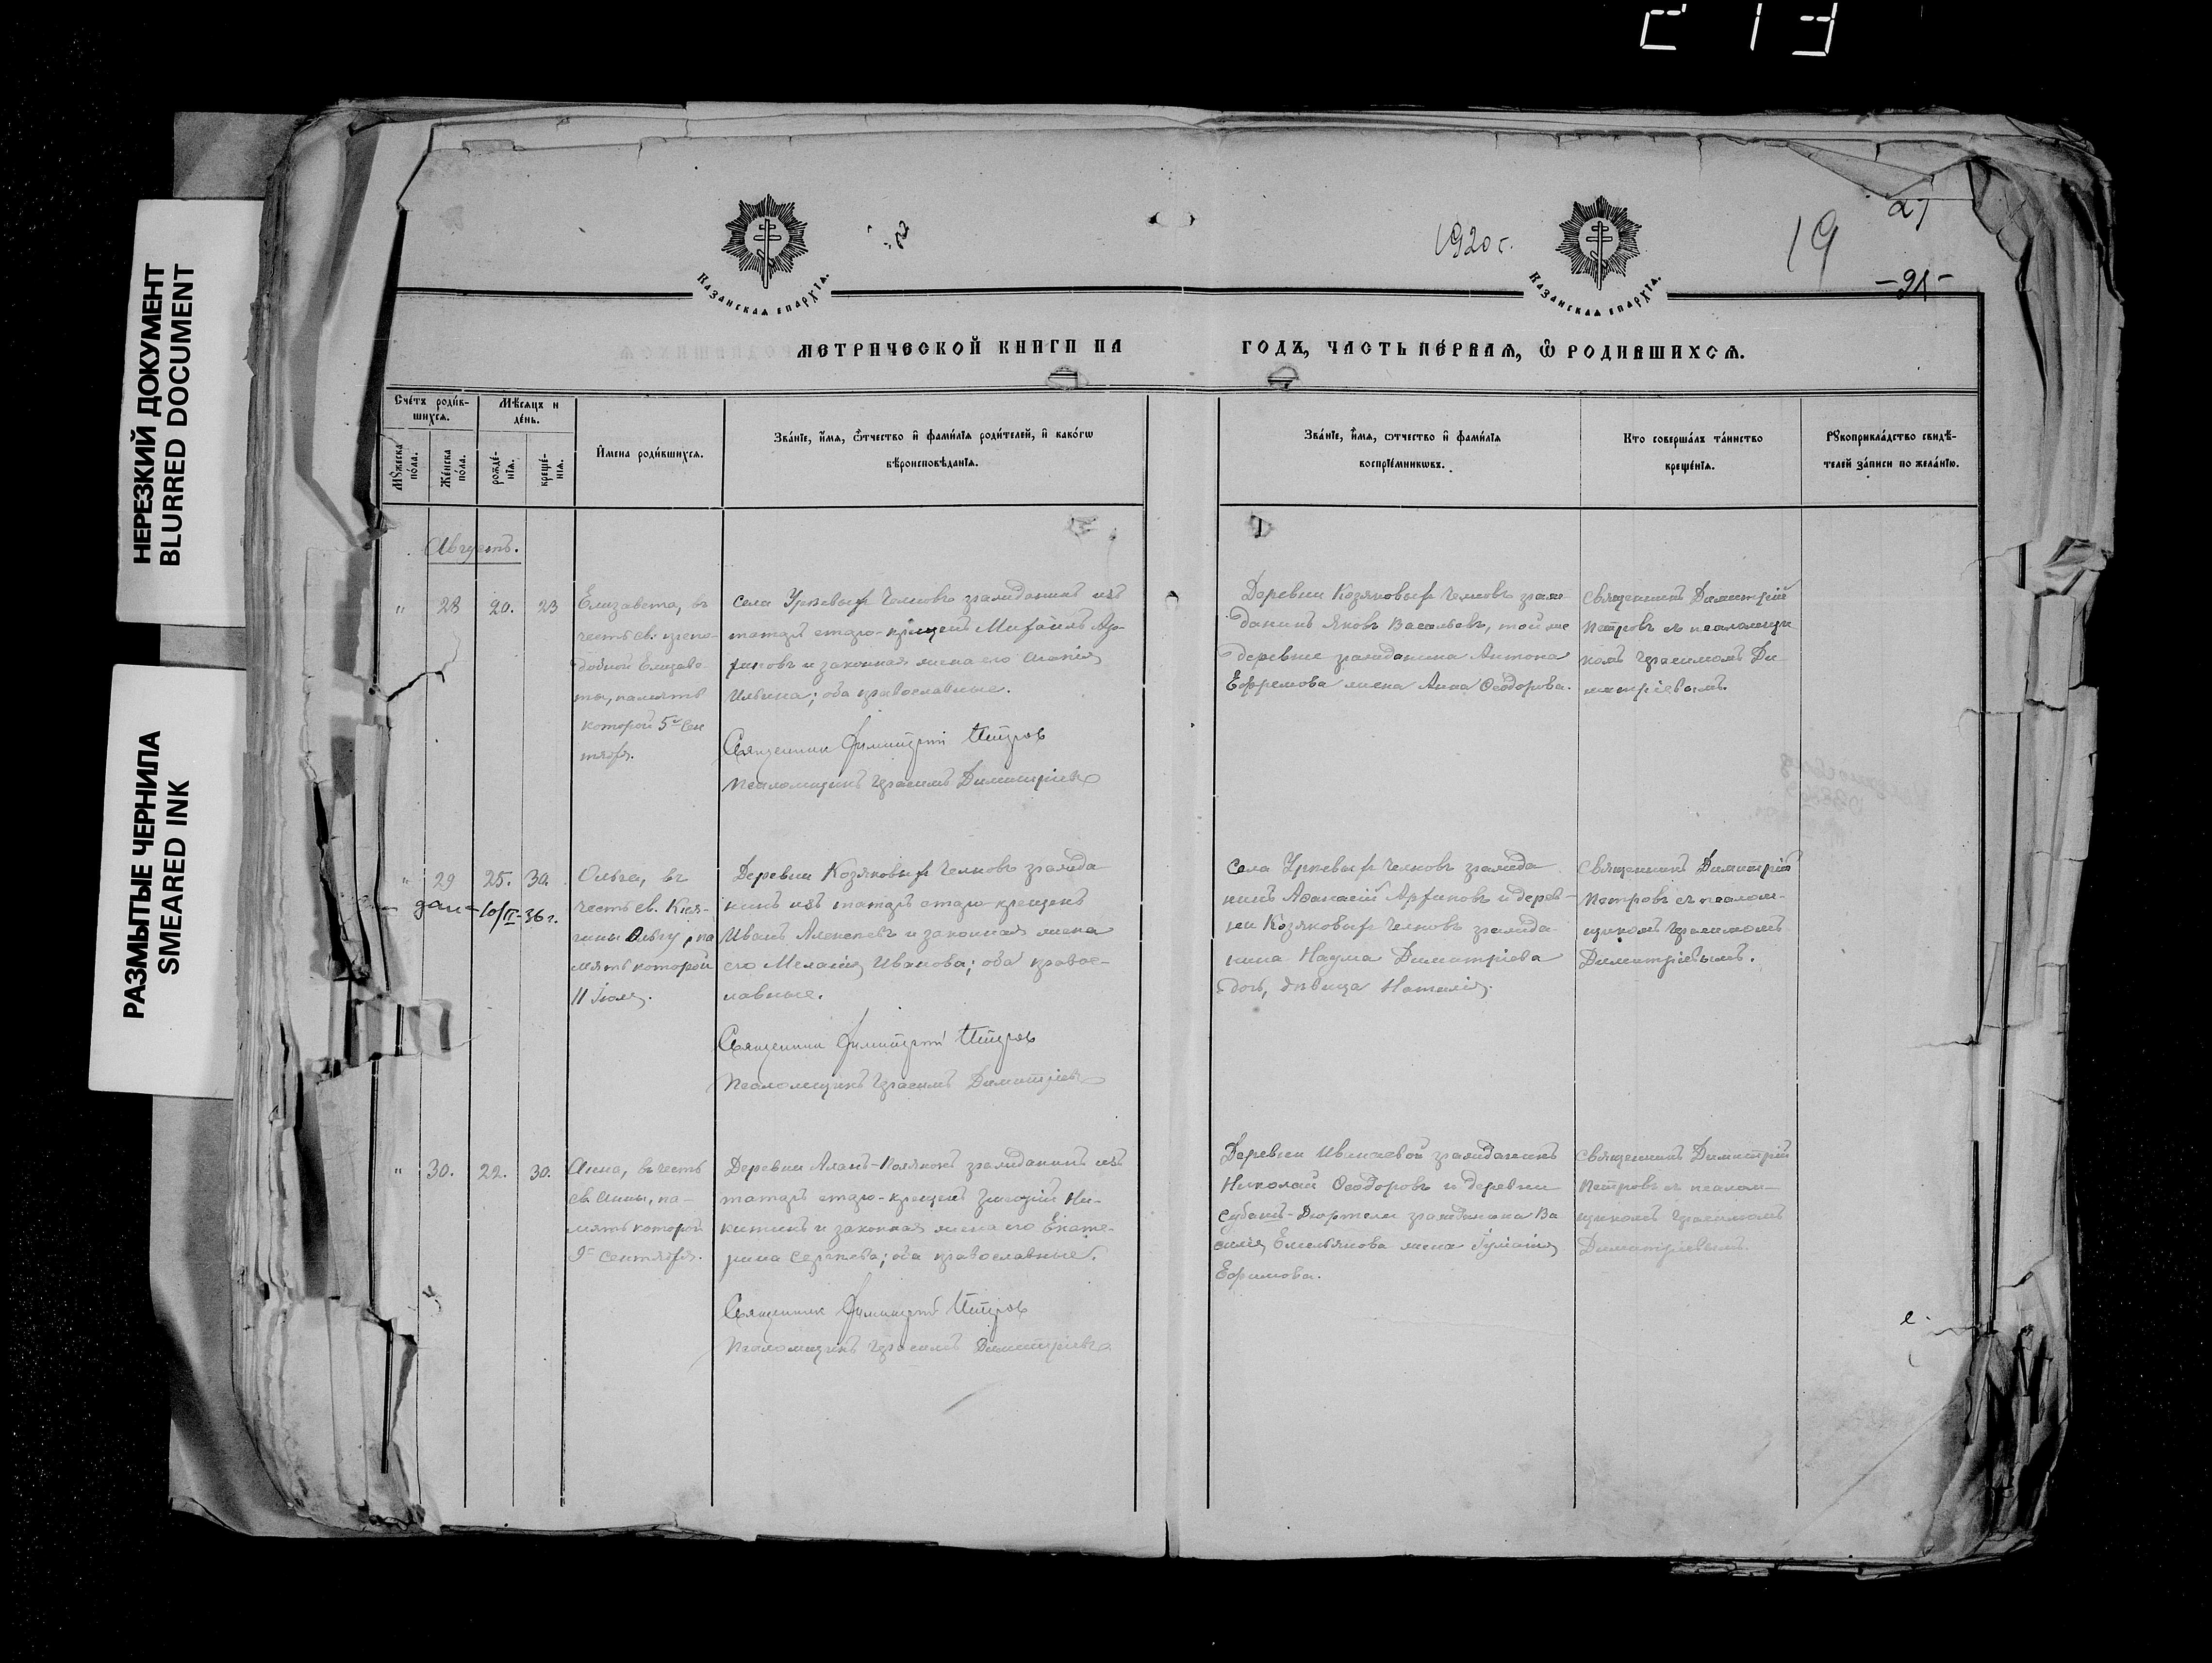 НЕРЕЗКИЙ ДОКУМЕНТ
BLURRED DOCUMENT
РАЗМЫТЫЕ ЧЕРНИЛА
SMEARED INK
1920 г.
19
-21-
Казанская епархїя.
Казанская епархїя.
МЕТРИЧЕСКОЙ КНИГИ НА
ГОДЪ, ЧАСТЬ ПЕРВАЯ, Ѡ РОДИВШИХСЯ.
Счетъ родив-
шихся.
Мѣсяцъ и
день.
Мужеска
пола.
Женска
пола.
рожде-
нїя.
креще-
нїя.
Имена родившихся.
Званїе, имя, отчество и фамилїя родителей, и какогѡ
вѣроисповѣданїя.
Званїе, имя, отчество и фамилїя
воспрїемникѡвъ.
Кто совершалъ таинство
крещенїя.
Рукоприкладство свидѣ-
телей записи по желанїю.
Августъ.
" 28 20. 23
Елизавета, въ
честь св. препо-
добной Елизаве-
ты, память
которой 5го Сен
тября.
Села Урѣевыхъ Челновъ гражданинъ изъ
татаръ старо-крещенъ Михаилъ
и законная жена его
Ильина; оба православные.
Священник Димитрий Петров
Псаломщикъ Герасимъ Димитріевъ
Деревни Козяковыхъ Челновъ граж-
данинъ Яковъ Васильевъ, той же
деревни гражданина Антона
Ефремова жена Анна Ѳеодорова.
Священникъ Димитрій
Петровъ съ псаломщи
комъ Герасимомъ Ди-
митріевымъ.
" 29 25. 30.
дан - 10/II-36 г.
Ольга, въ
честь св. Кня-
гини Ольги, па
мять которой
11 Іюля.
Деревни Козяковыхъ Челновъ гражда
нинъ изъ татаръ старо-крещенъ
Иванъ Алексеевъ и законная жена
его Меланія Иванова; оба правос-
лавные.
Священник Димитрий Петров
Псаломщикъ Герасимъ Димитріевъ
Села Урѣевыхъ Челновъ гражда
нинъ Аѳанасій Архиповъ и дерев-
ни Козяковыхъ Челновъ гражда-
нина Наума Димитріева
дочь, дѣвица Наталія.
Священникъ Димитрій
Петровъ съ псалом-
щикомъ Герасимомъ
Димитріевымъ.
" 30. 22. 30.
Анна, въ честь
св. Анны, па-
мять которой
9го Сентября.
Деревни Аланъ-Полянъ гражданинъ изъ
татаръ старо-крещенъ Григорій Ни-
китинъ и законная жена его Екате-
рина Сергѣева; оба православные.
Священник Димитрий Петров
Псаломщикъ Герасимъ Димитріевъ
Деревни Иванаевой гражданинъ
Николай Ѳеодоровъ и деревни
гражданина Ва
силія Емельянова жена
Ефимова.
Священникъ Димитрій
Петровъ съ псалом-
щикомъ Герасимомъ
Димитріевымъ.